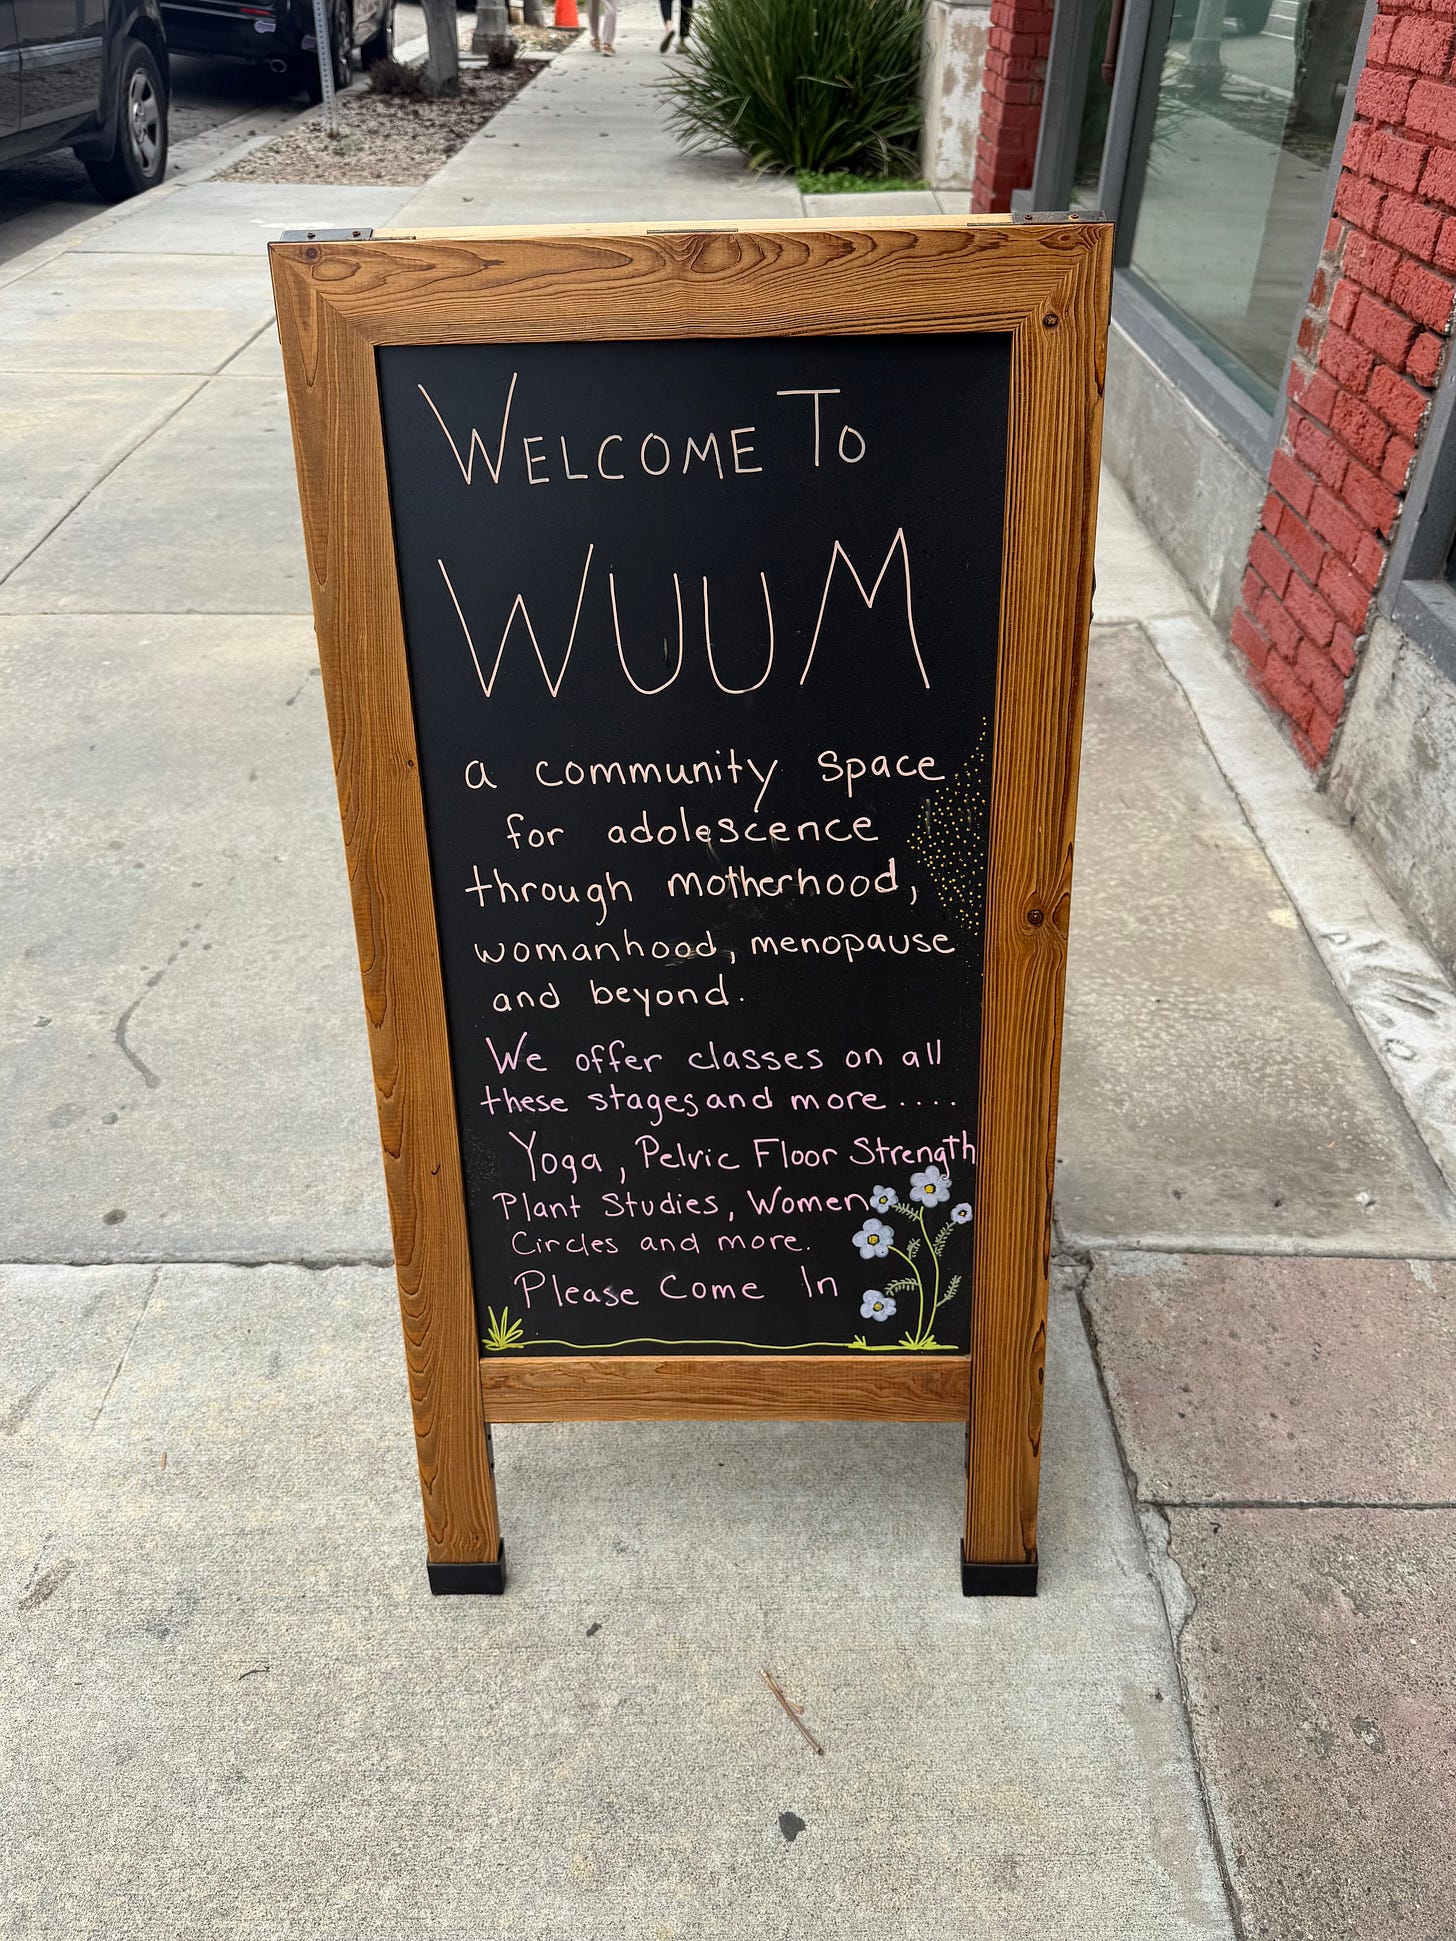 WELCOME TO
WUUM
a community space
for adolescence
through motherhood,
womanhood, menopause
and beyond.
We offer classes on all
these stages and more ....
Yoga, Pelvic Floor Strength
Plant Studies, Women
Circles and more.
Please Come In